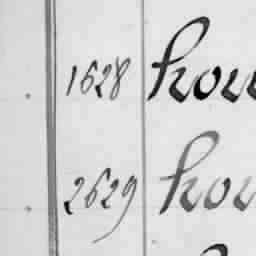 1628 hou
2629 hou